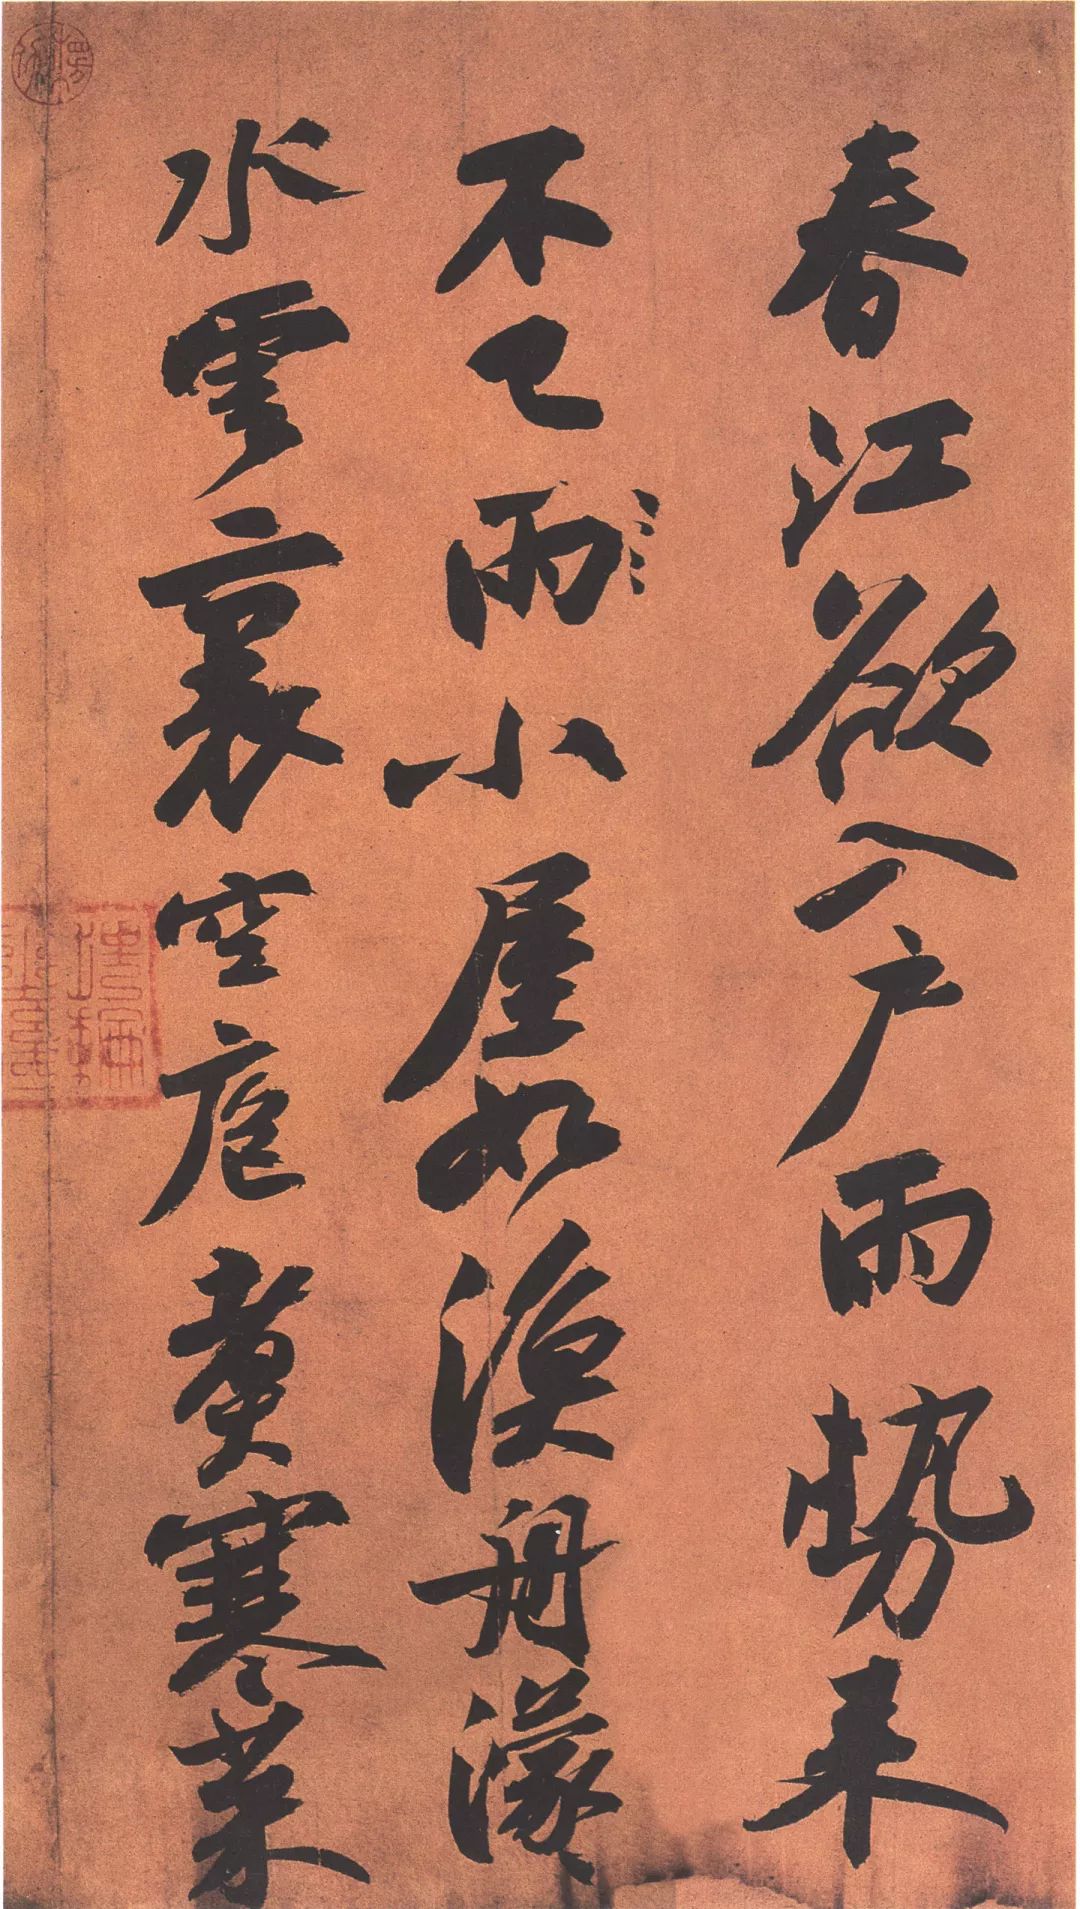 春江欲入戶雨勢來
不已雨小屋如漁舟濛
水雲裏空庖煮寒菜